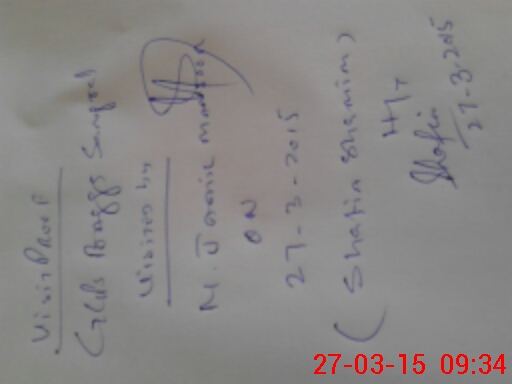 Visit Proof
GGPS Baggo Sangral
Visited by
M. Jamil Manzoor
ON
27-3-2015
(Shazia Shamim)
H/T
Shazia
27-3-2015
27-03-15 09:34